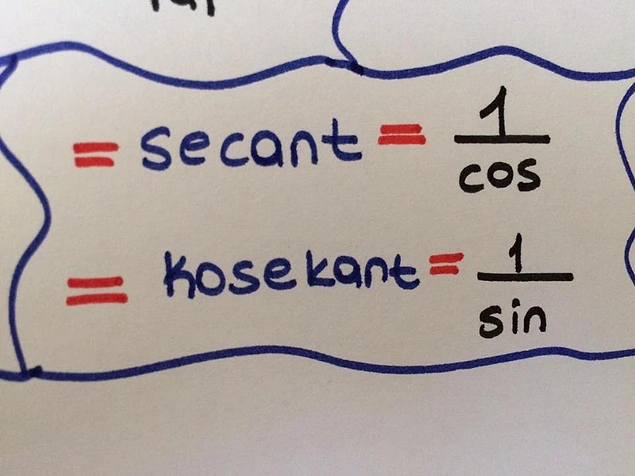 = secant = 1/cos
= kosekant = 1/sin